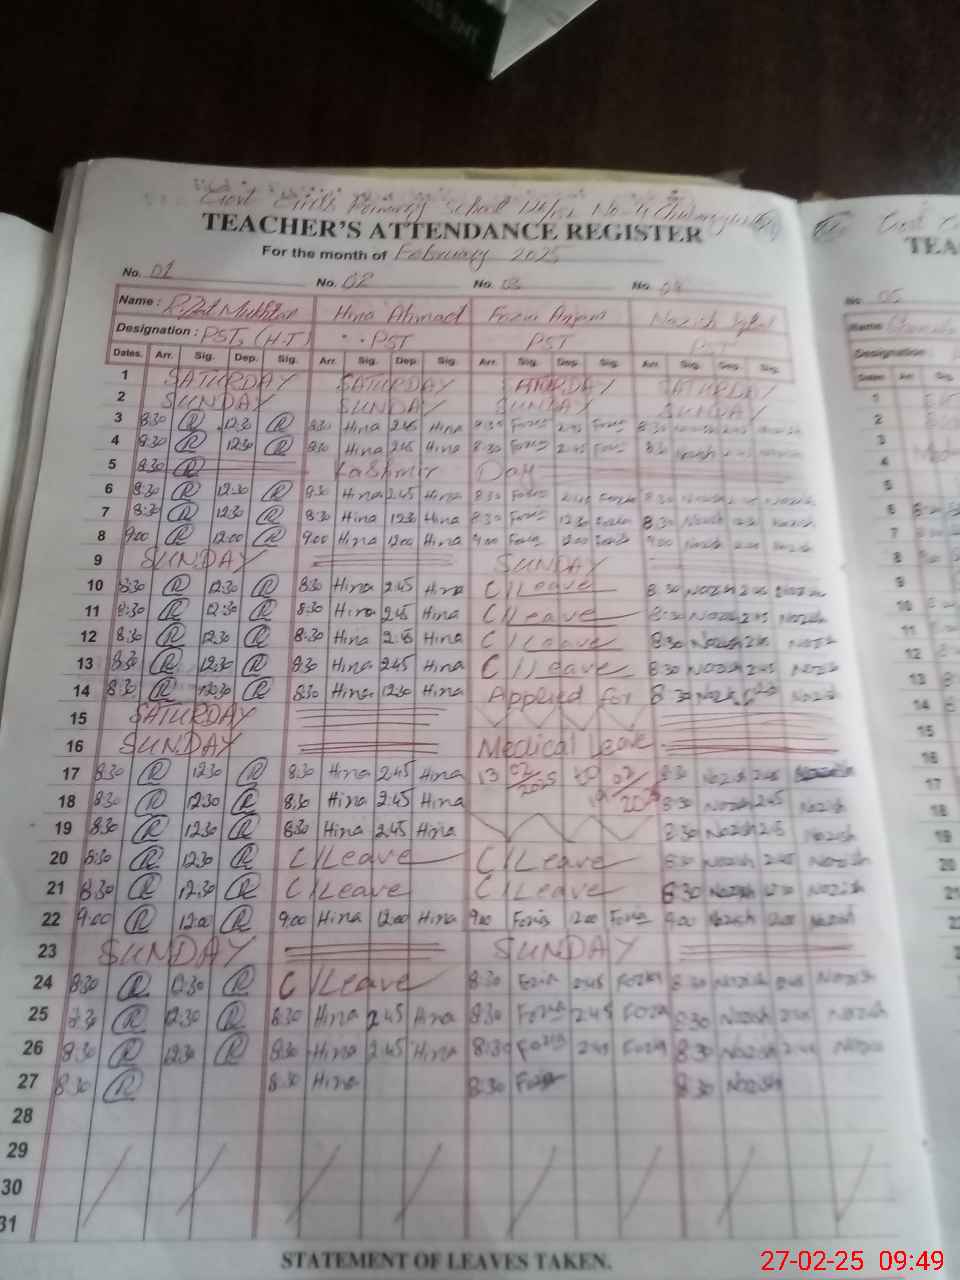 Govt Girls Primary School No-4
TEACHER'S ATTENDANCE REGISTER
For the month of February 2025
No. 01 No. 02 No. 03 No. 04
Name : Mukhtar Hina Ahmad Fozia Anjam Nazish Iqbal
Designation : PST, (H.T) PST PST
Dates. Arr. Sig. Dep. Sig. Arr. Sig. Dep. Sig. Arr. Sig. Dep. Sig. Arr. Sig. Dep. Sig.
1 SATURDAY SATURDAY SATURDAY SATURDAY
2 SUNDAY SUNDAY SUNDAY SUNDAY
3 8:30 R 12:30 R 8:30 Hina 2:45 Hina 8:30 Fozia 2:45 Fozia 8:30 Nazish 2:45 Nazish
4 8:30 R 12:30 R 8:30 Hina 2:45 Hina 8:30 Fozia 2:45 Fozia 8:30 Nazish 2:45 Nazish
5 8:30 R Kashmir Day
6 8:30 R 12:30 R 8:30 Hina 2:45 Hina 8:30 Fozia 2:45 Fozia 8:30 Nazish 2:45 Nazish
7 8:30 R 12:30 R 8:30 Hina 12:30 Hina 8:30 Fozia 12:30 Fozia 8:30 Nazish 12:30 Nazish
8 9:00 R 12:00 R 9:00 Hina 12:00 Hina 9:00 Fozia 12:00 Fozia 9:00 Nazish 12:00 Nazish
9 SUNDAY SUNDAY
10 8:30 R 12:30 R 8:30 Hina 2:45 Hina C/Leave 8:30 Nazish 2:45 Nazish
11 8:30 R 12:30 R 8:30 Hina 2:45 Hina C/Leave 8:30 Nazish 2:45 Nazish
12 8:30 R 12:30 R 8:30 Hina Hina C/Leave 8:30 Nazish 2:45 Nazish
13 8:30 R 12:30 R 8:30 Hina 2:45 Hina C/Leave 8:30 Nazish 2:45 Nazish
14 8:30 R 12:30 R 8:30 Hina 12:30 Hina Applied for 8:30 Nazish Nazish
15 SATURDAY
16 SUNDAY Medical Leave
17 8:30 R 12:30 R 8:30 Hina 2:45 Hina 13 02/2025 to 8:30 Nazish 2:45
18 8:30 R 12:30 R 8:30 Hina 2:45 Hina 19 02/2025 8:30 Nazish 2:45 Nazish
19 8:30 R 12:30 R 8:30 Hina 2:45 Hina 8:30 Nazish 2:45 Nazish
20 8:30 R 12:30 R C/Leave C/Leave 8:30 Nazish 2:45 Nazish
21 8:30 R 12:30 R C/Leave C/Leave 8:30 Nazish 12:30 Nazish
22 9:00 R 12:00 R 9:00 Hina 12:00 Hina 9:00 Fozia 12:00 Fozia 9:00 Nazish 12:00 Nazish
23 SUNDAY SUNDAY
24 8:30 R 12:30 R C/Leave 8:30 Fozia 2:45 Fozia 8:30 Nazish 2:45 Nazish
25 8:30 R 12:30 R 8:30 Hina 2:45 Hina 8:30 Fozia 2:45 Fozia 8:30 Nazish 2:45 Nazish
26 8:30 R 12:30 R 8:30 Hina 2:45 Hina 8:30 Fozia 2:45 Fozia 8:30 Nazish 2:45 Nazish
27 8:30 R 8:30 Hina 8:30 Fozia 8:30 Nazish
28
29
30
31
STATEMENT OF LEAVES TAKEN.
No. 05
Name :
Designation
Dates Arr.
1
2
3
4
5
6
7
8
9
10
11
12
13
14
15
16
17
18
19
20
21
27-02-25 09:49